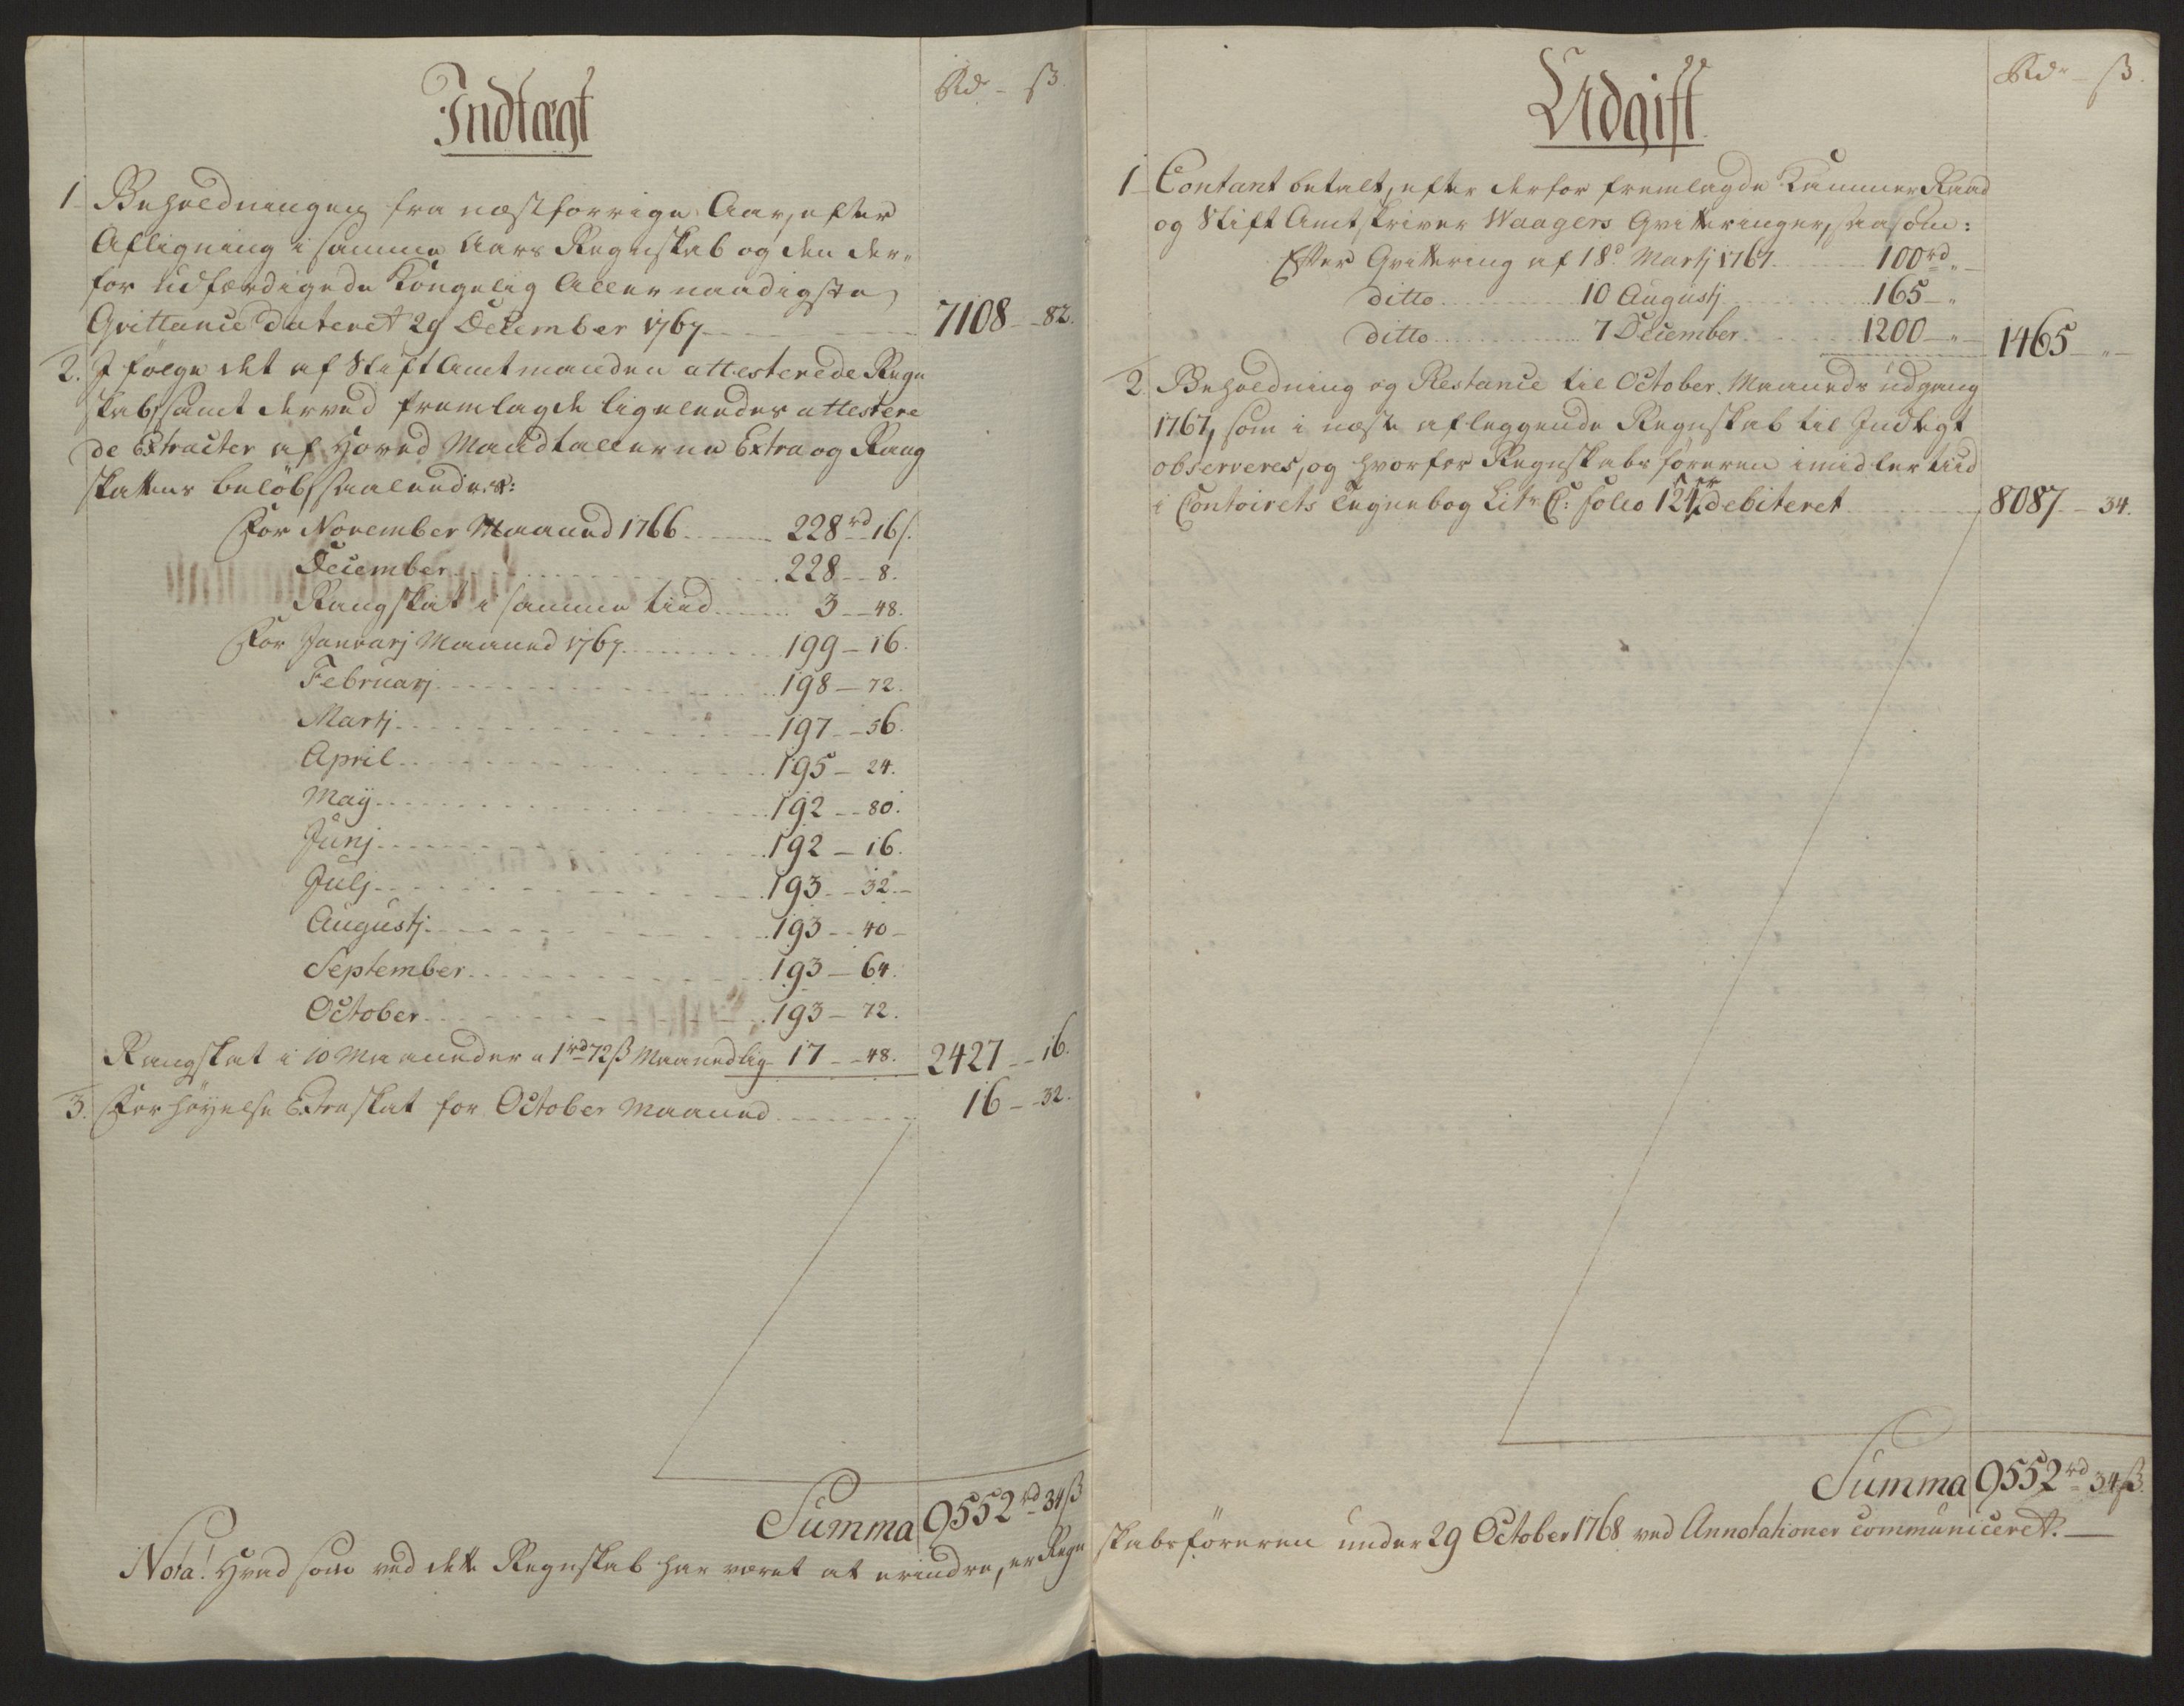 Indtægt
Rd - ß.
1 Beholdningen fra næstforrige Aar, efter
Afligning i samme Aars Regnskab og den der„
for udfærdigede Kongelig Allernaadigste
Qvittance dateret 29 December 1767 7108 - 82.
2. I følge det af Stift Amtmanden attesterede Regn
skab, samt derved fremlagde ligeleedes attestere
de Extracter af Hoved Mandtallerne Extra og Rang
skattens beløb, saaleedes:
For November Maaned 1766 228 rd 16 ß.
December 228 - 8.
Rangskat i samme tiid 3 - 48.
For Januarj Maaned 1767 199 - 16.
Februarj 198 - 72.
Martj 197 - 56.
April 195 - 24.
May 192 - 80.
Junj 192 - 16.
Julj 193 - 32 -
Augustj 193 - 40 -
September 193 - 64.
October 193 - 72.
Rangskat i 10 Maaneder a 1 rd 72 ß Maanedlig 17 - 48. 2427 - 16.
3. Forhøyelse Extraskat for October Maaned 16 - 32.
Summa 9552 rd 34 ß
Nota! Hvad som ved dette Regnskab har været at erindre, er Regn
Udgift
Rdr - ß.
1 Contant betalt, efter derfor fremlagde Kammer Raad
og Stift Amtskriver Waagers Qvitteringer, saasom:
Efter Qvittering af 18d Martj 1767 100 rd „ -
ditto 10 Augustj 165 - „
ditto 7 December 1200 - „ - 1465 - „ -
2. Beholdning og Restance til October Maaneds udgang
1767, som i næste afleggende Regnskab til Indtegt
observeres, og hvorfor Regnskabsføreren imidlertiid
i Contoirets Tegnebog Litr C: folio 121, er debiteret 8087 - 34.
Summa 9552 rd 34 ß.
skabsføreren under 29 October 1768 ved Annotationer communiceret. -